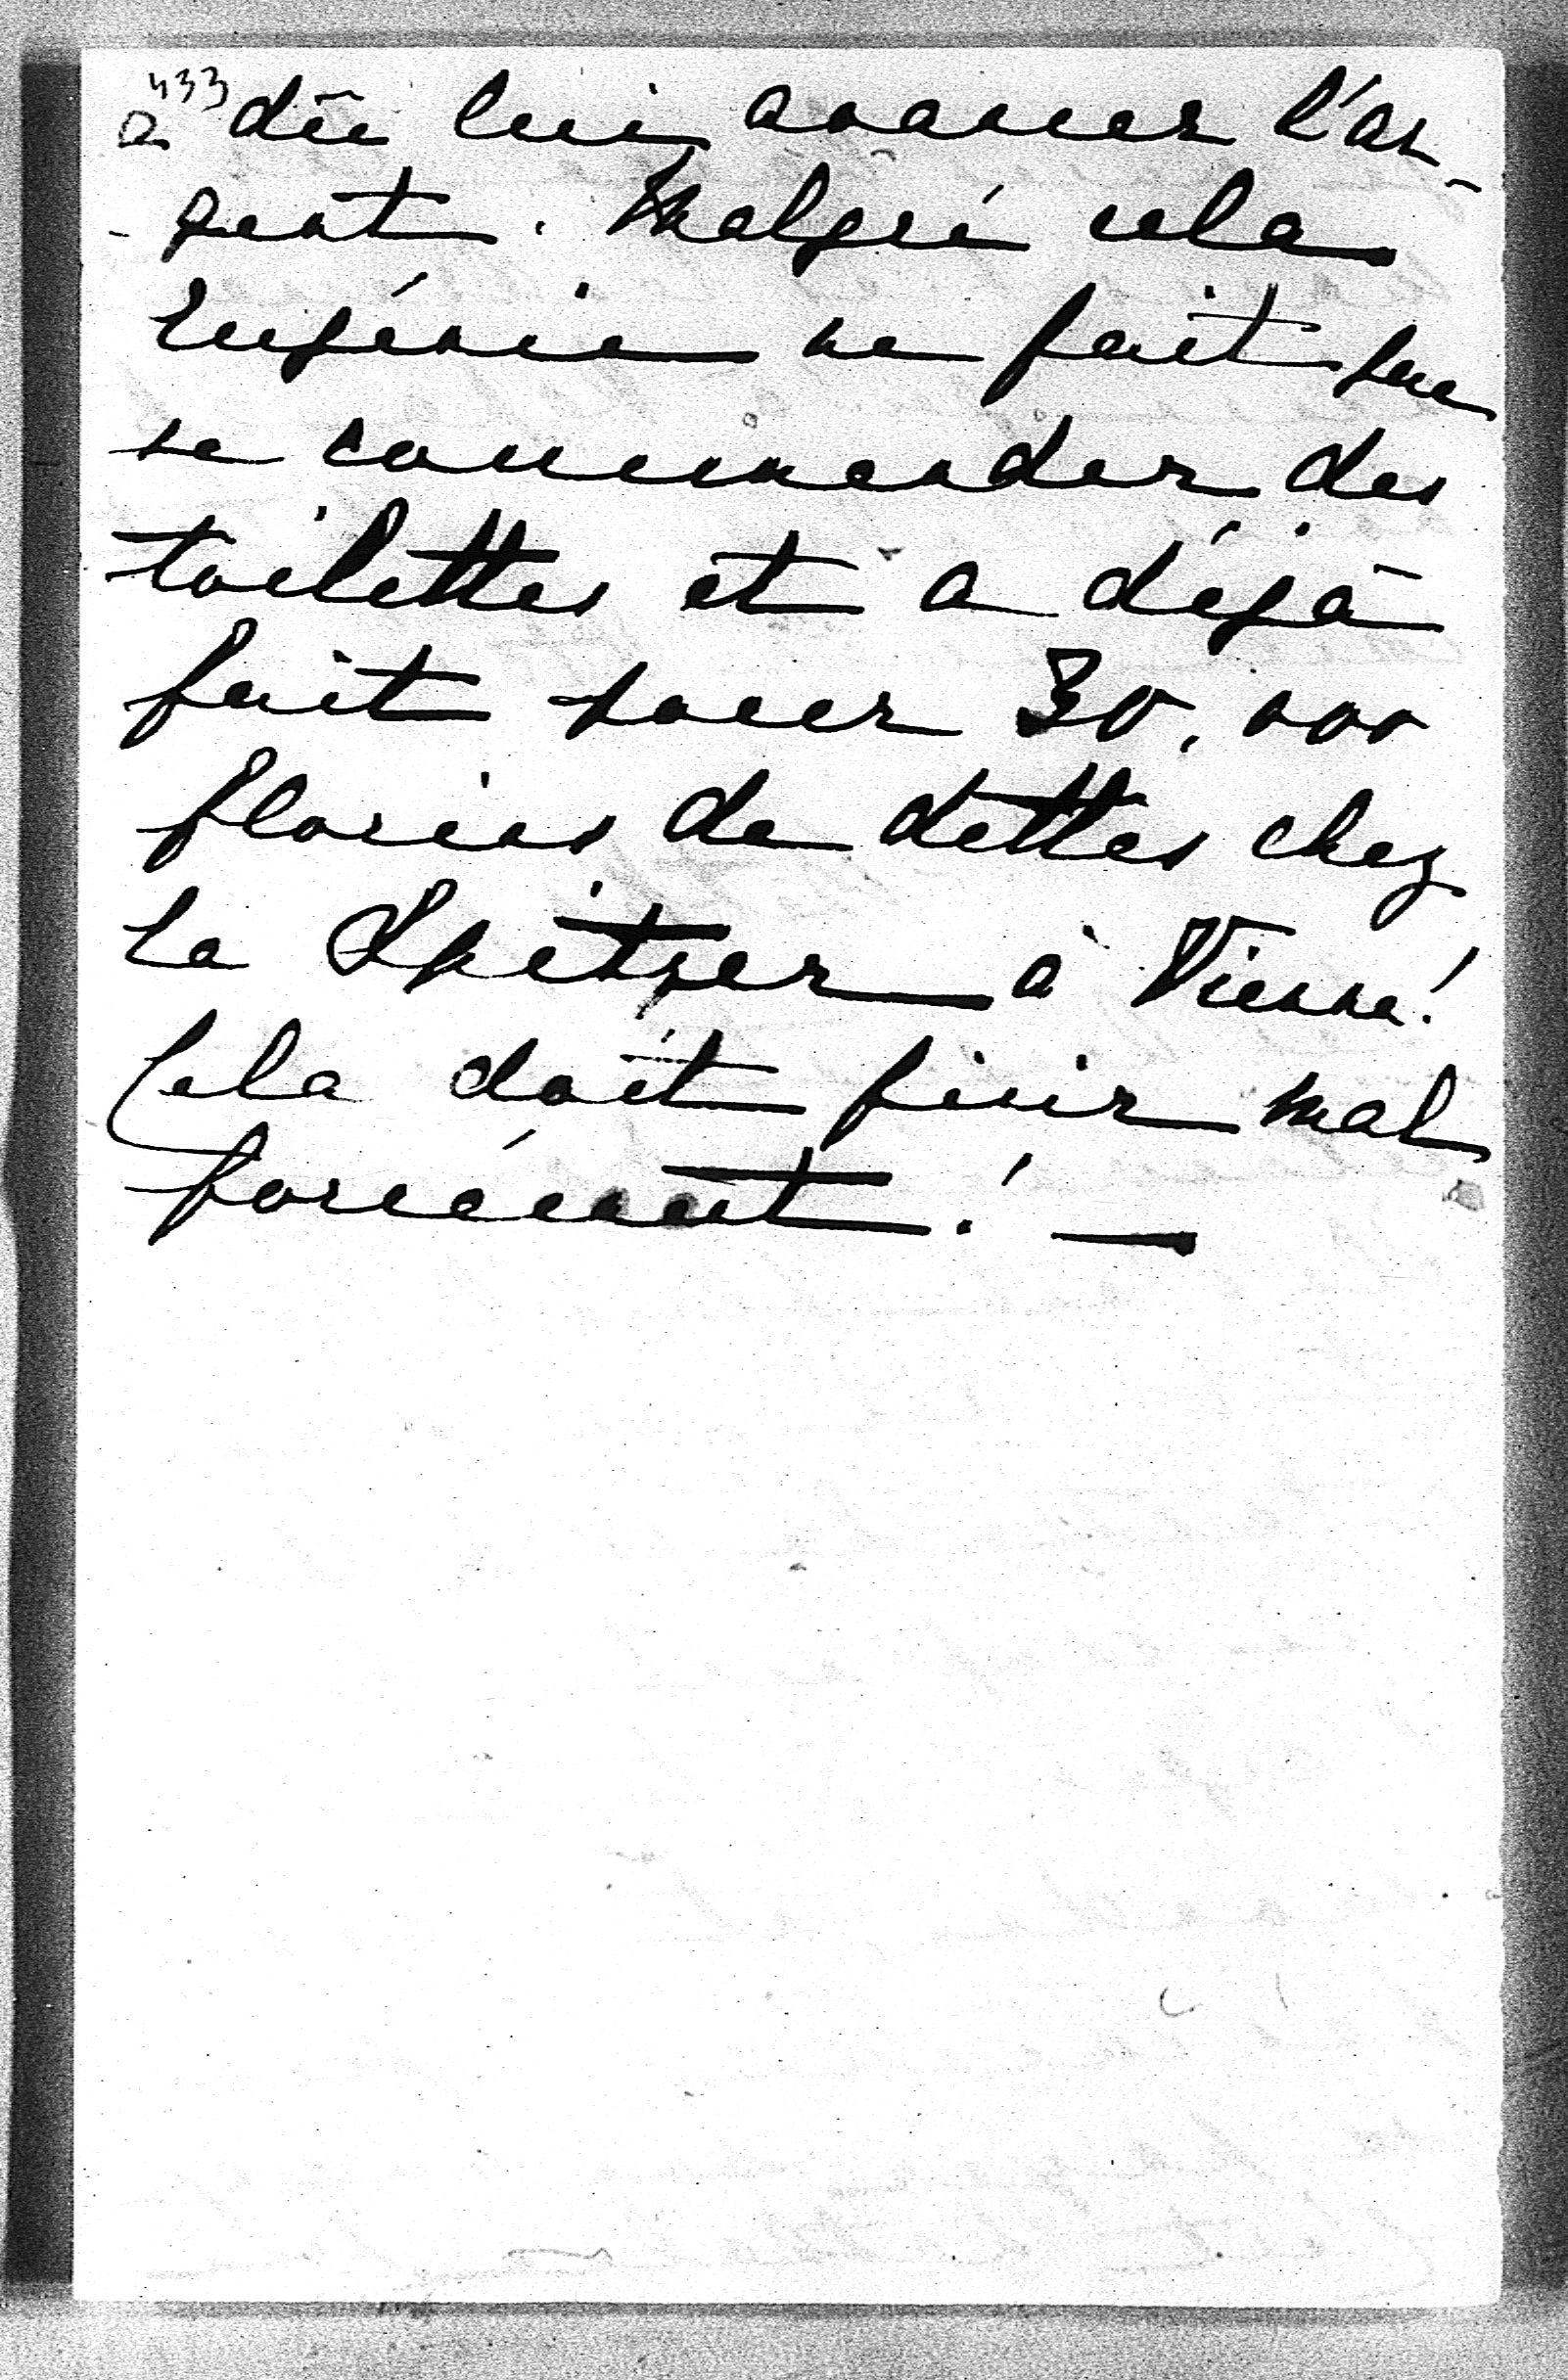 433
a dû lui avancer l'ar-
-gent. Malgré cela
Eugénie ne fait que
se commander des
toilettes et a déjà
fait pour 30,000
florins de dettes chez
la Spitzer à Vienne!
Cela doit finir mal
forcément! —